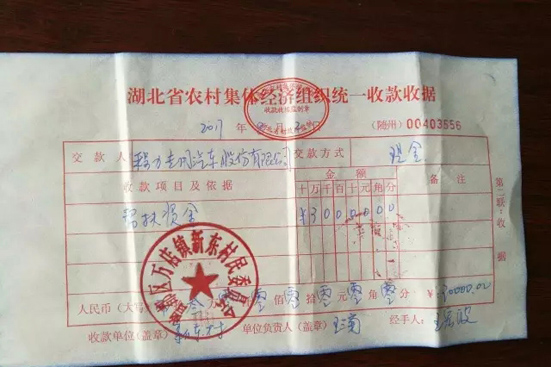 湖北省农村集体经济组织统一收款收据
2017年 月 2 日 (随州) 00403556
交款人 程力专用汽车股份有限公司 交款方式 现金
收款项目及依据 金额 备注
十万千百十元角分
帮扶资金 ¥3000000
第二联:收据
区万店镇新东村民委员会
人民币(大写) 叁 零佰零拾零元零角零分 ¥30000.00
收款单位(盖章) 新东村 单位负责人(盖章) 经手人: